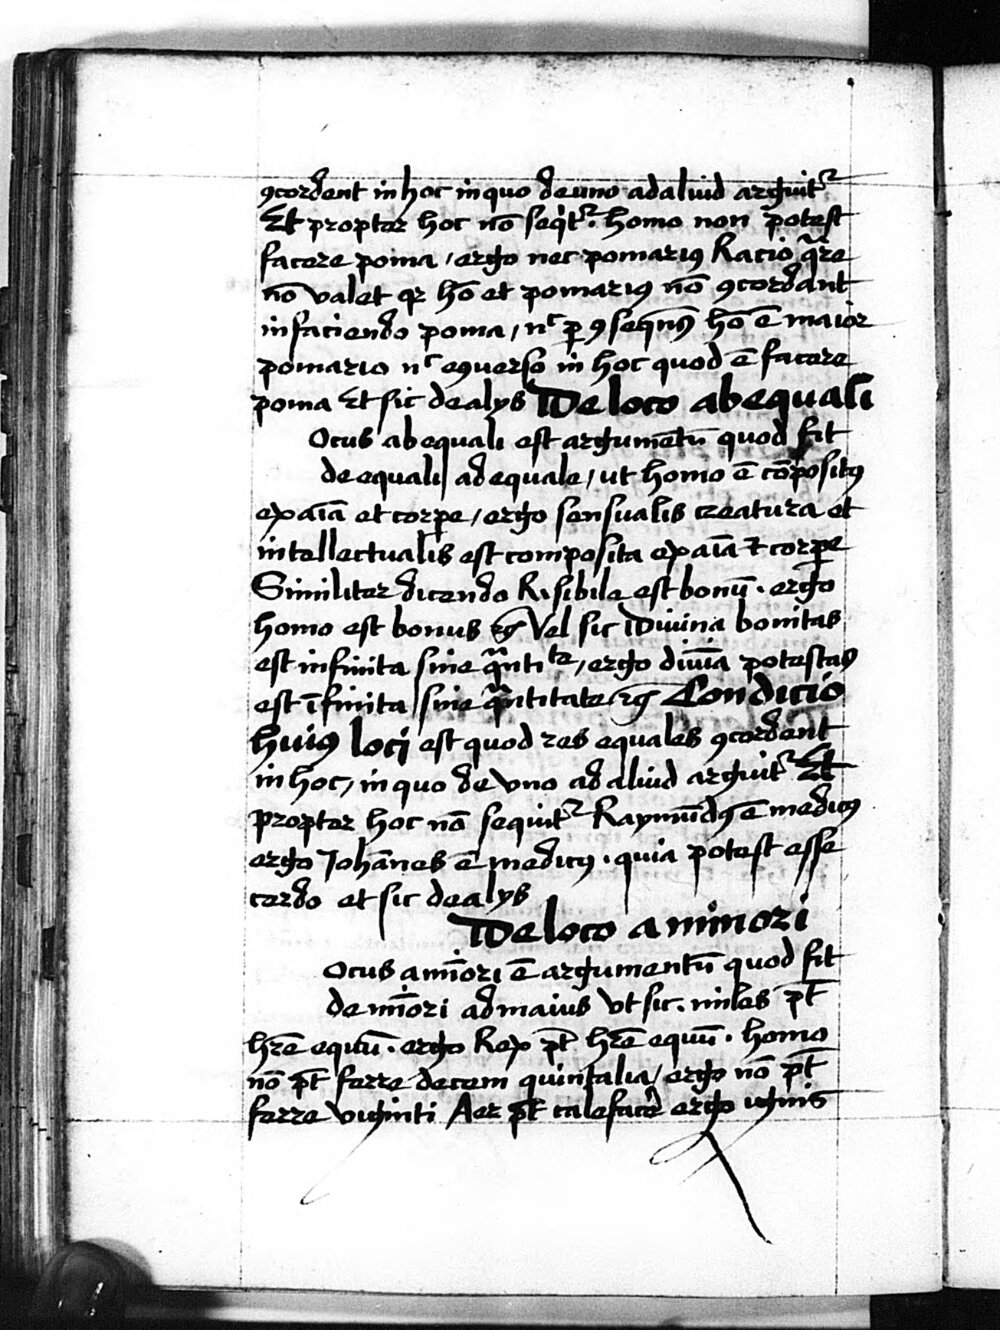 ꝯcordent in hoc in quo de uno ad aliud arguitᷣ
Et propter hoc nō seqitᷣ. homo non potest
facere poma / ergo nec pomariꝰ Racio qͣre
nō valet qr hō et pomariꝰ nō ꝯcordant
in faciendo poma / nͨ ꝑ ꝯseqn̄s hō ē maior
pomario nͨ eꝯuerso in hoc quod ē facere
poma Et sic de alijs De loco ab equali
Ocus ab equali est argumētū quod fit
de equali ad equale / ut homo ē cōpositꝰ
ex aīa et corꝑe / ergo sensualis creatura et
intellectualis est composita ex aīa ⁊ corꝑe
Similiter dicendo Risibile est bonū. ergo
homo est bonus ⁊c̄ Vel sic Diuina bonitas
est infinita sine qͣntitͣte / ergo diuīa potestas
est īfinita sine qͣntitate ⁊c̄ Condicio
huiꝰ loci est quod res equales ꝯcordent
in hoc / in quo de vno ad aliud arguitᷣ Et
propter hoc nō sequitᷣ Raymūdꝰ ē medicꝰ
ergo Johānes ē medicꝰ. quia potest esse
cerdo et sic de alijs
De loco a minori
Ocus a mīori ē argumentū quod fit
de mīori ad maius Vt sic. miles pt̄
hr̄e equū. ergo Rex pt̄ hr̄e equū. homo
nō pt̄ ferre decem quintalia / ergo nō pt̄
ferre viginti Aer pt̄ calefacẽ ergo ignis